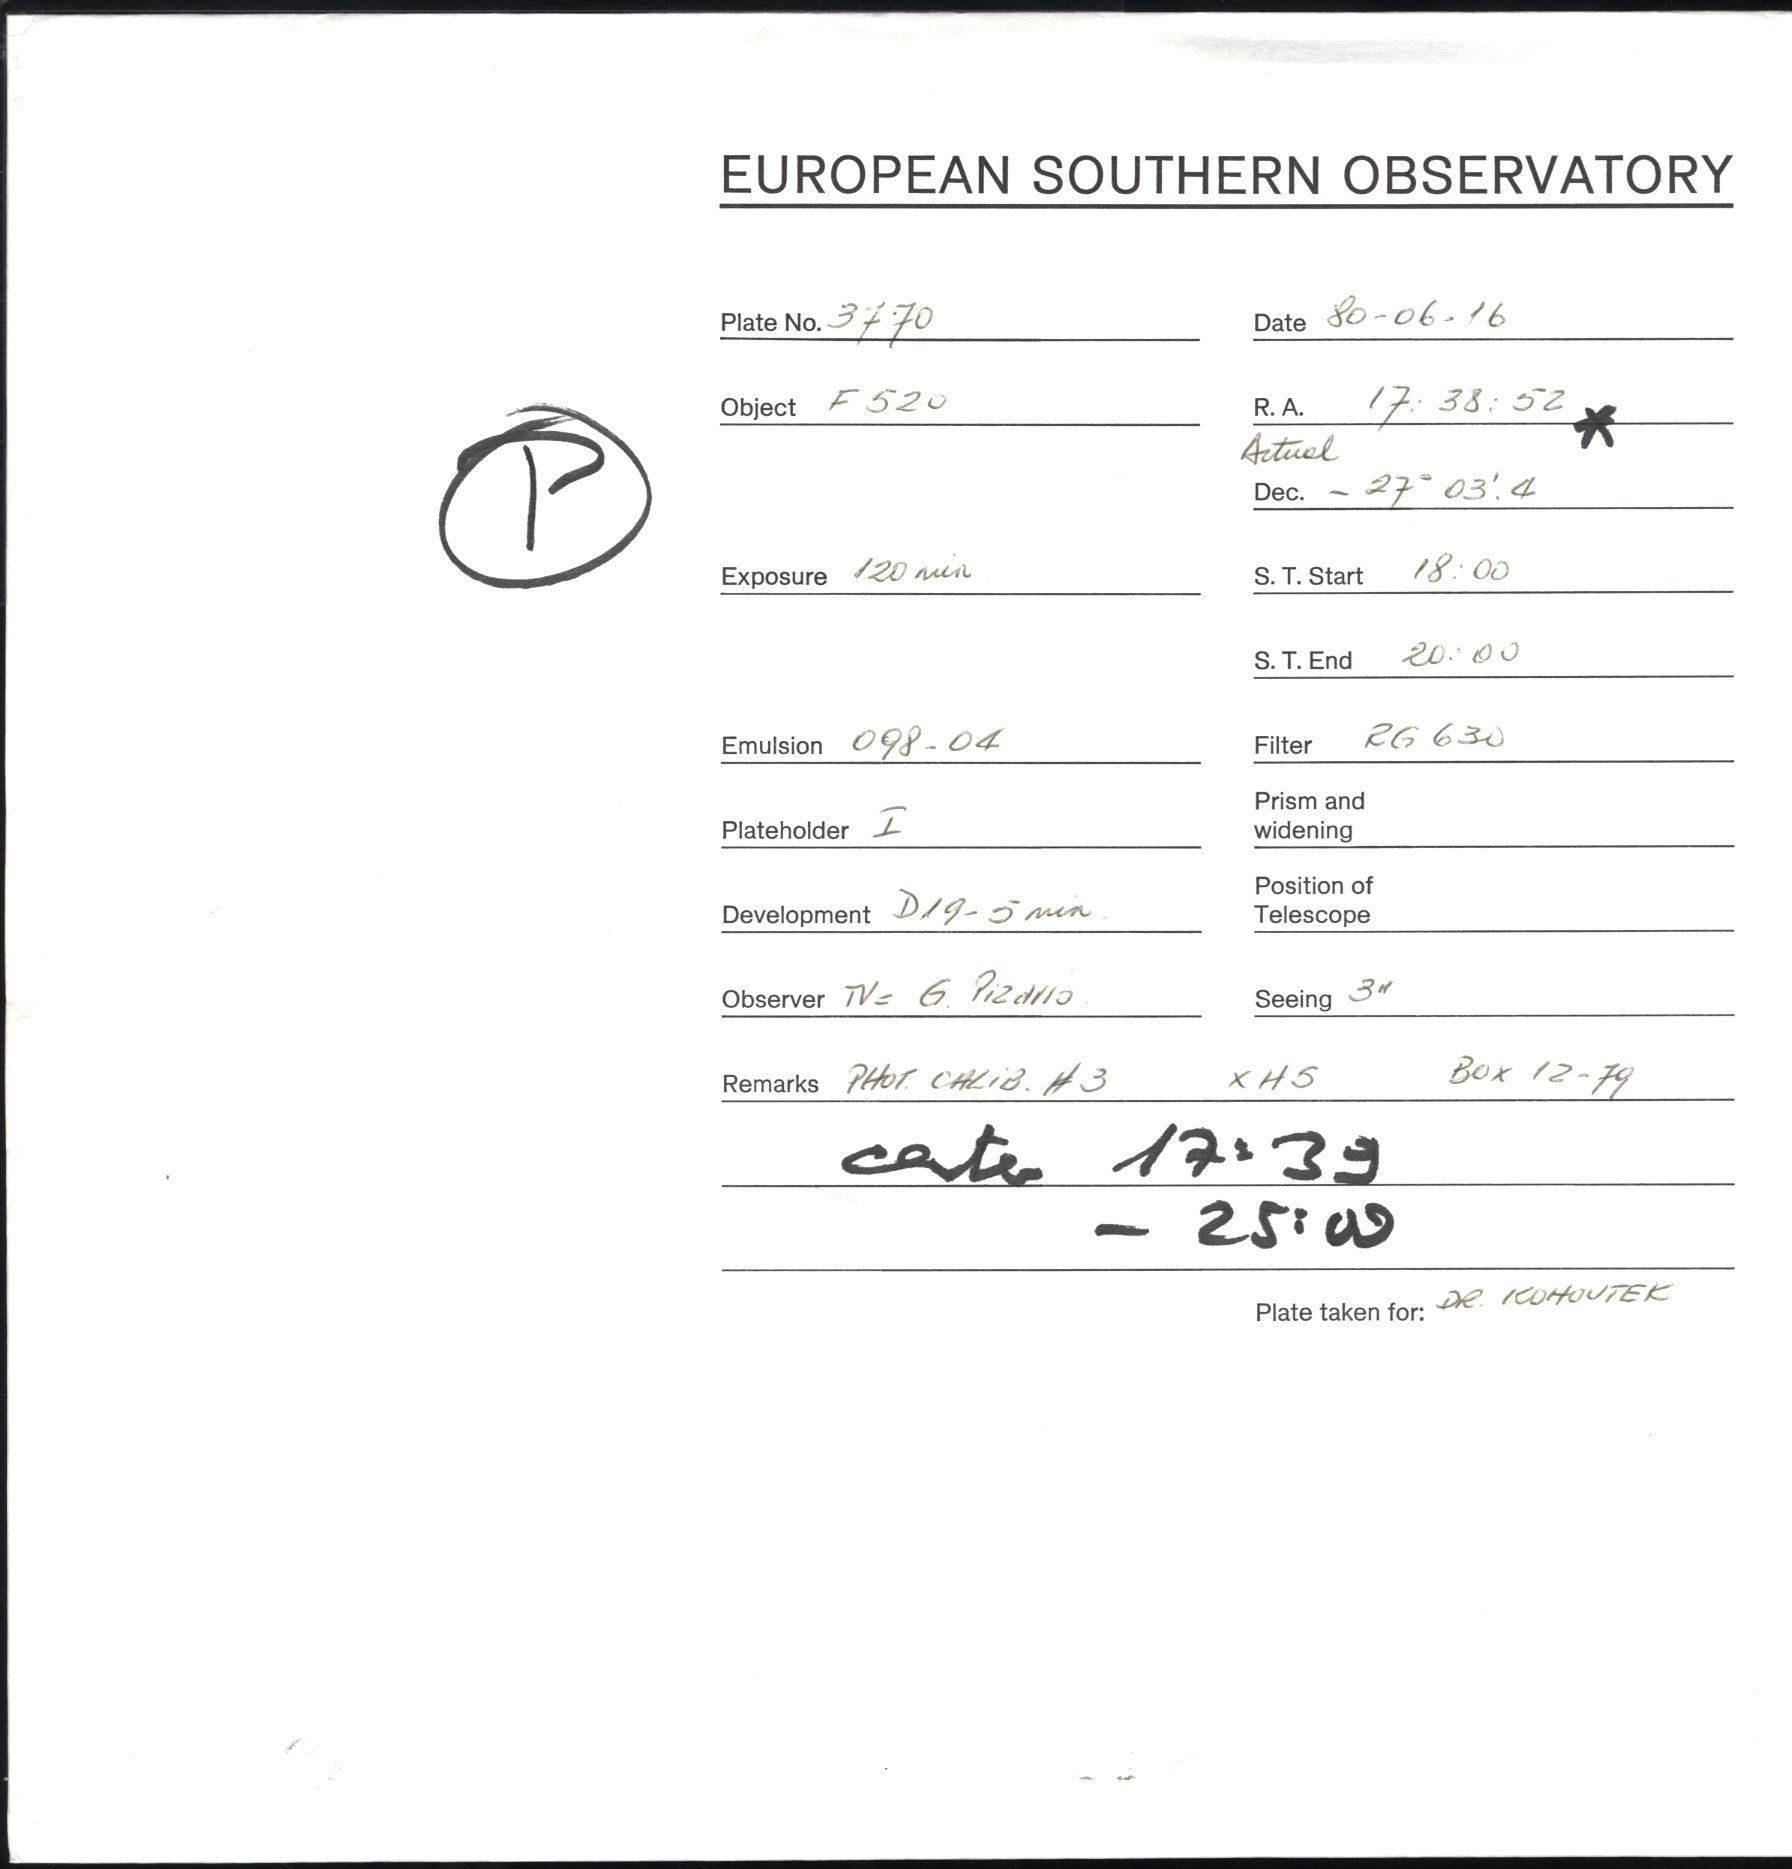 EUROPEAN SOUTHERN OBSERVATORY
Plate No. 3770
Date 80-06-16
Object F 520
R. A. 17: 38: 52 *
Actual
Dec. - 27° 03'. 4
P
Exposure 120 min
S. T. Start 18: 00
S. T. End 20: 00
Emulsion 098-04
Filter RG 630
Plateholder I
Prism and
widening
Development D19-5 min.
Position of
Telescope
Observer G. Pizarro.
Seeing 3"
Remarks PHOT. CALIB. #3 x HS BOX 12-79
center 17:39
- 25:00
Plate taken for: DR. KOHOUTEK